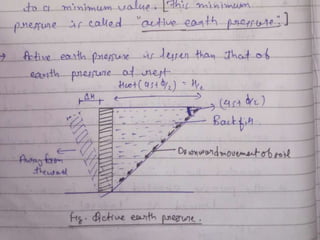 to a minimum value. [This minimum
pressure is called "active earth pressure".]
→ Active earth pressure is lesser than that of
earth pressure at rest
H cot (45+ϕ/2) = H/2
ΔH
(45+ϕ/2)
Backfill
Downward movement of soil
Away from
the wall
Fig. Active earth pressure.